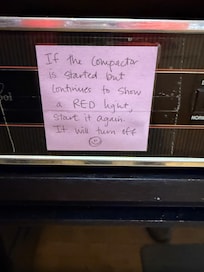 If the compactor
is started but
continues to show
a RED light,
start it again.
It will turn off